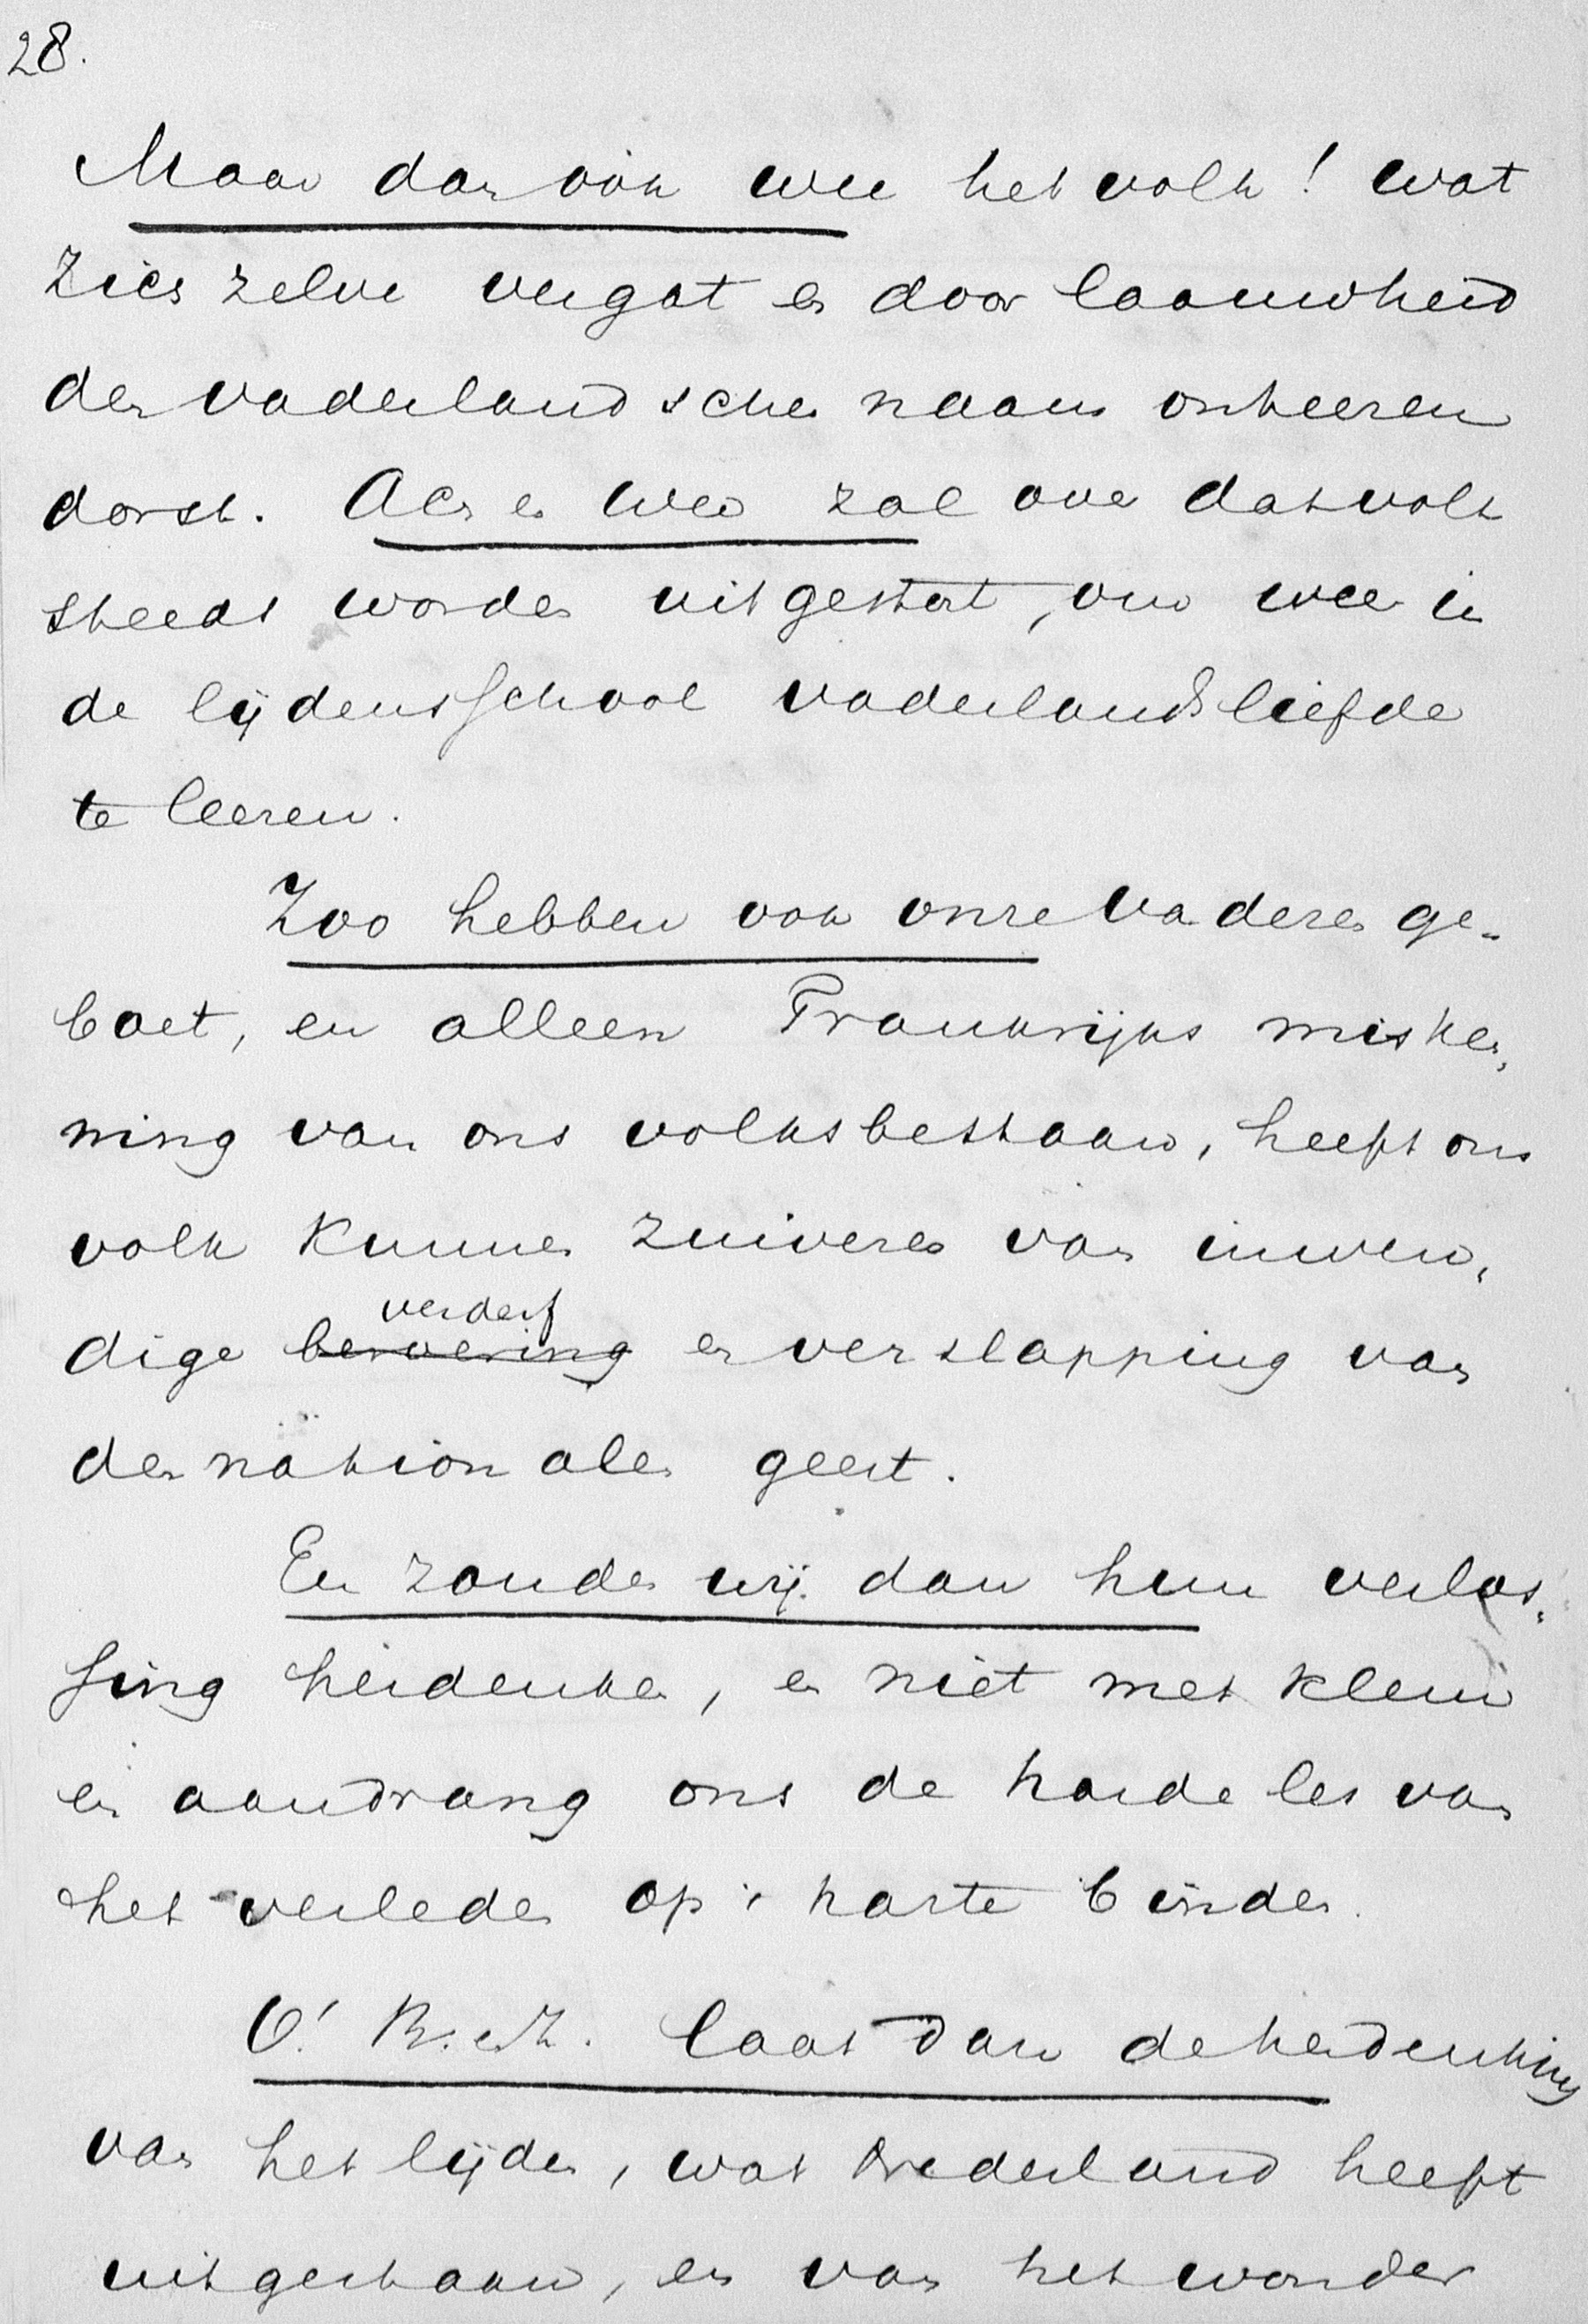 28.
Maar dan óók wee het volk! wat
Zich zelve vergat en door laauwheid
den vaderlandschen naam onteeren
dorst. Ach en Wee zal over dat volk
steeds worden uitgestort, om weer in
de lijdensschool vaderlandsliefde
te leeren.
Zoo hebben ook onze Vaderen ge-
boet, en alleen Frankrijks misken-
ning van ons volksbestaan, heeft ons
volk Kunnen zuiveren van inwen-
verderf
dige beroering en verslapping van
den nationalen geest.
En zouden wij dan hun verlos-
sing herdenken, en niet met klem
en aandrang ons de harde les van
het verleden op 't harte binden.
O! B. en Z. laat dan de herdenking
van het lijden, wat Nederland heeft
uitgestaan, en van het wonder